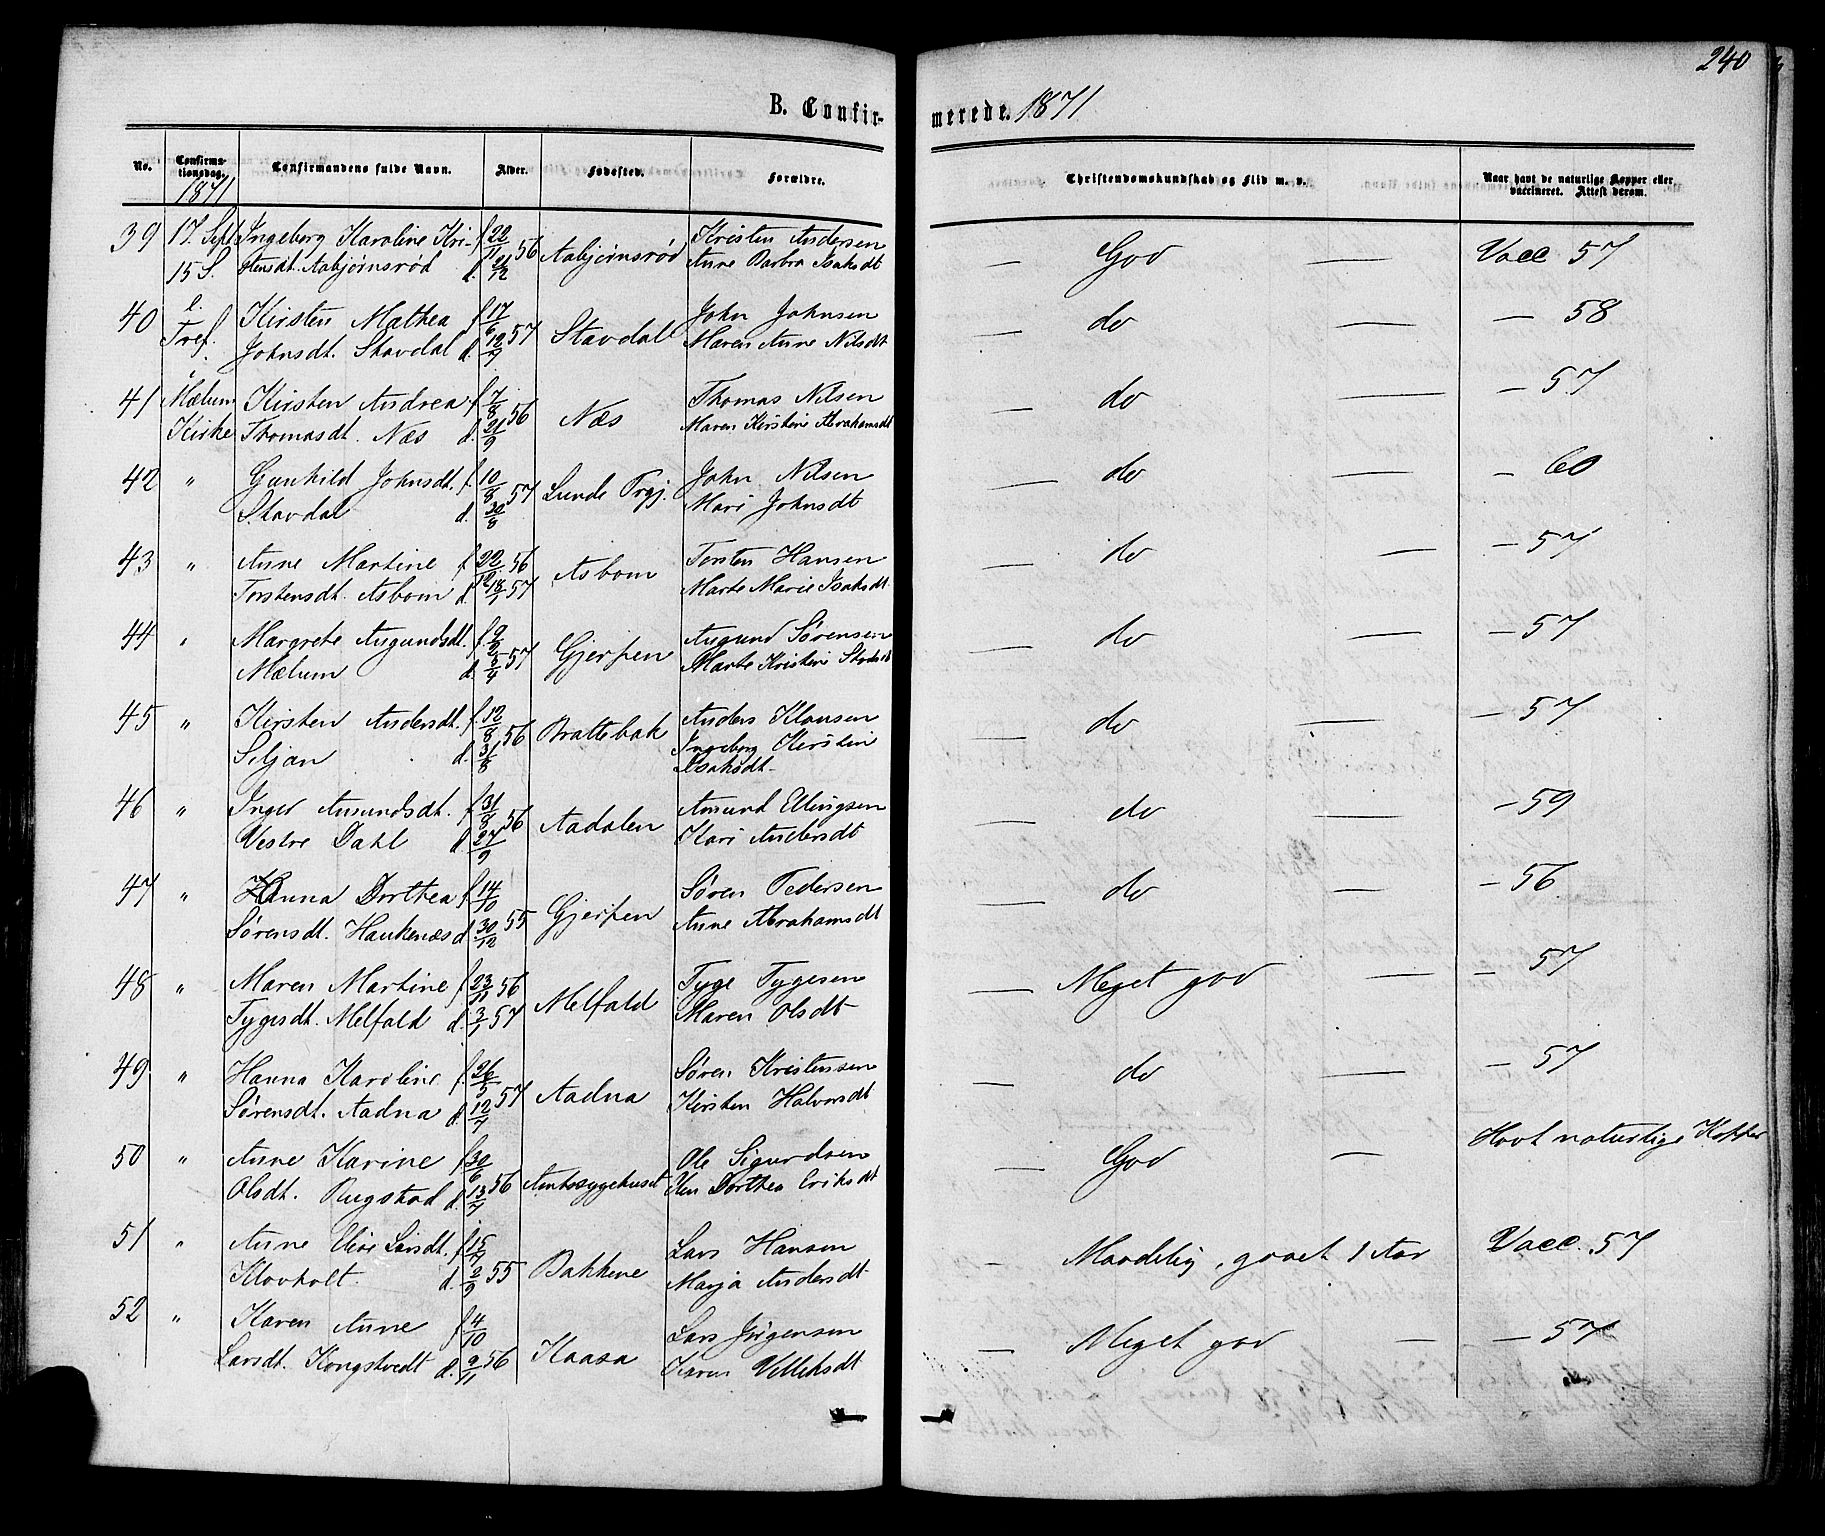 240
B. Confirmerede. 1871
No.
Confirmationsdag.
1871
Confirmandens fulde Navn.
Alder.
Fødested.
Forældre.
Christendomskundskab og Flid m. v.
Naar havt de naturlige Kopper eller vaccineret. Attest derom.
39 17. Sept Ingeborg Karoline Kri- f. 22/11 56 Aabjørnsrød Kristen Andersen — God — Vacc 57
15 S. stensdt. Aabjørnsrød d. 21/12 Anne Barbra Isaksdt
40 e. Kirsten Mathea f. 17/6 57 Stavdal John Johnsen — do — — 58
Tref. Johnsdt. Stavdal d. 12/7 Maren Anne Nilsdt
41 Mælum Kirsten Andrea f. 7/8 56 Næs Thomas Nilsen — do — — 57
Kirke Thomasdt. Næs d. 21/9 Maren Kirstine Abrahamsdt
42 " Gunhild Johnsdt. f. 10/8 57 Lunde Prgj. John Nilsen — do — — 60
Stavdal d. 30/8 Mari Johnsdt
43 " Anne Martine f. 22/12 56 Asbom Torsten Hansen — do — — 57
Torstensdt. Asbom d. 18/1 57 Marte Marie Isaksdt
44 " Margrete Augundsdt. f. 2/2 57 Gjerpen Augund Sørensen — do — — 57
Mælum d. 5/4 Marte Kristine
45 " Kirsten Andersdt. f. 12/8 56 Brattebak Anders Klausen — do — — 57
Siljan d. 31/8 Ingeborg Kirstin
Isaksdt.
46 " Inger Amundsdt. f. 31/8 56 Aadalen Amund Ellingsen — do — — 59
Vestre Dahl d. 27/9 Kari Andersdt
47 " Hanna Dorthea f. 14/10 Gjerpen Søren Pedersen — do — — 56
Sørensdt. Haukenæs d. 30/12 55 Anne Abrahamsdt
48 " Maren Martine f. 23/11 56 Melfald Tyge Tygesen — Meget god — — 57
Tygesdt. Melfald d. 3/1 57 Maren Olsdt
49 " Hanna Karoline f. 26/5 57 Aadna Søren Kristensen — do — — 57
Sørensdt. Aadna d. 12/7 Kirsten Halvorsdt
50 " Anne Karine f. 30/6 56 Amtssygehuset Ole Sigurdsen — God — Havt naturlige Kopper
Olsdt. Rugstad d. 13/7 Dorthea Eriksdt
51 " Anne Elise Larsdt. f. 15/7 55 Bakkene Lars Hansen — Maadelig, gaaet 1 Aar Vacc. 57
Klovholt d. 2/9 Marja Andersdt
52 " Karen Anne f. 4/10 56 Kaasa Lars Jørgensen — Meget god — — 57
Larsdt. Kongstvedt d. 9/11 Karen Velleksdt